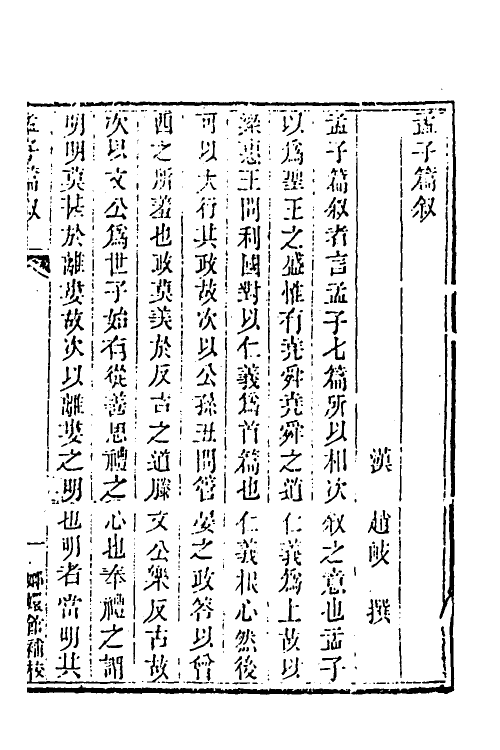 孟子篇叙
漢　趙岐　撰
孟子篇叙者言孟子七篇所以相次叙之意也孟子
以爲聖王之盛惟有堯舜堯舜之道仁義爲上故以
梁惠王問利國對以仁義爲首篇也仁義根心然後
可以大行其政故次以公孫丑問管晏之政答以曾
西之所羞也政莫美於反古之道滕文公樂反古故
次以文公爲世子始有從善思禮之心也奉禮之謂
明明莫甚於離婁故次以離婁之明也明者當明其
孟子篇叙　一　嫏嬛館補校